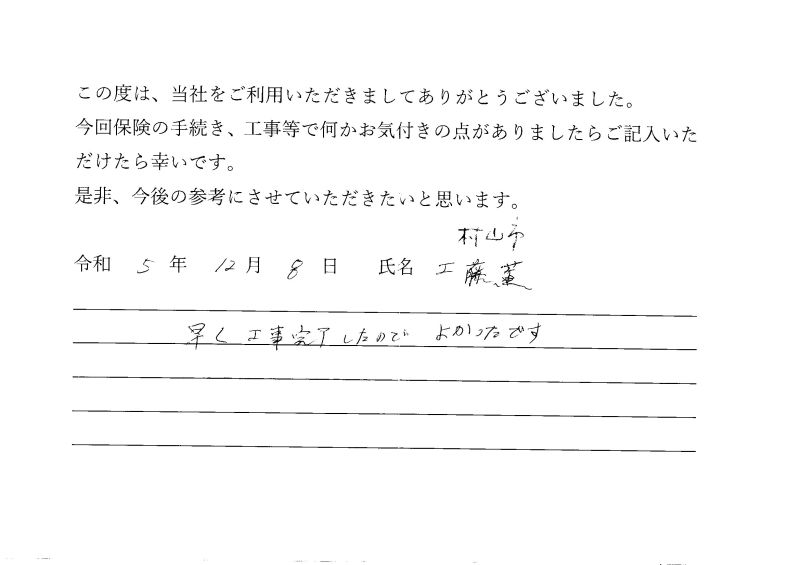 この度は、当社をご利用いただきましてありがとうございました。
今回保険の手続き、工事等で何かお気付きの点がありましたらご記入いた
だけたら幸いです。
是非、今後の参考にさせていただきたいと思います。
村山市
令和 5 年 12 月 8 日 氏名 工藤 薫
早く工事完了したので よかったです